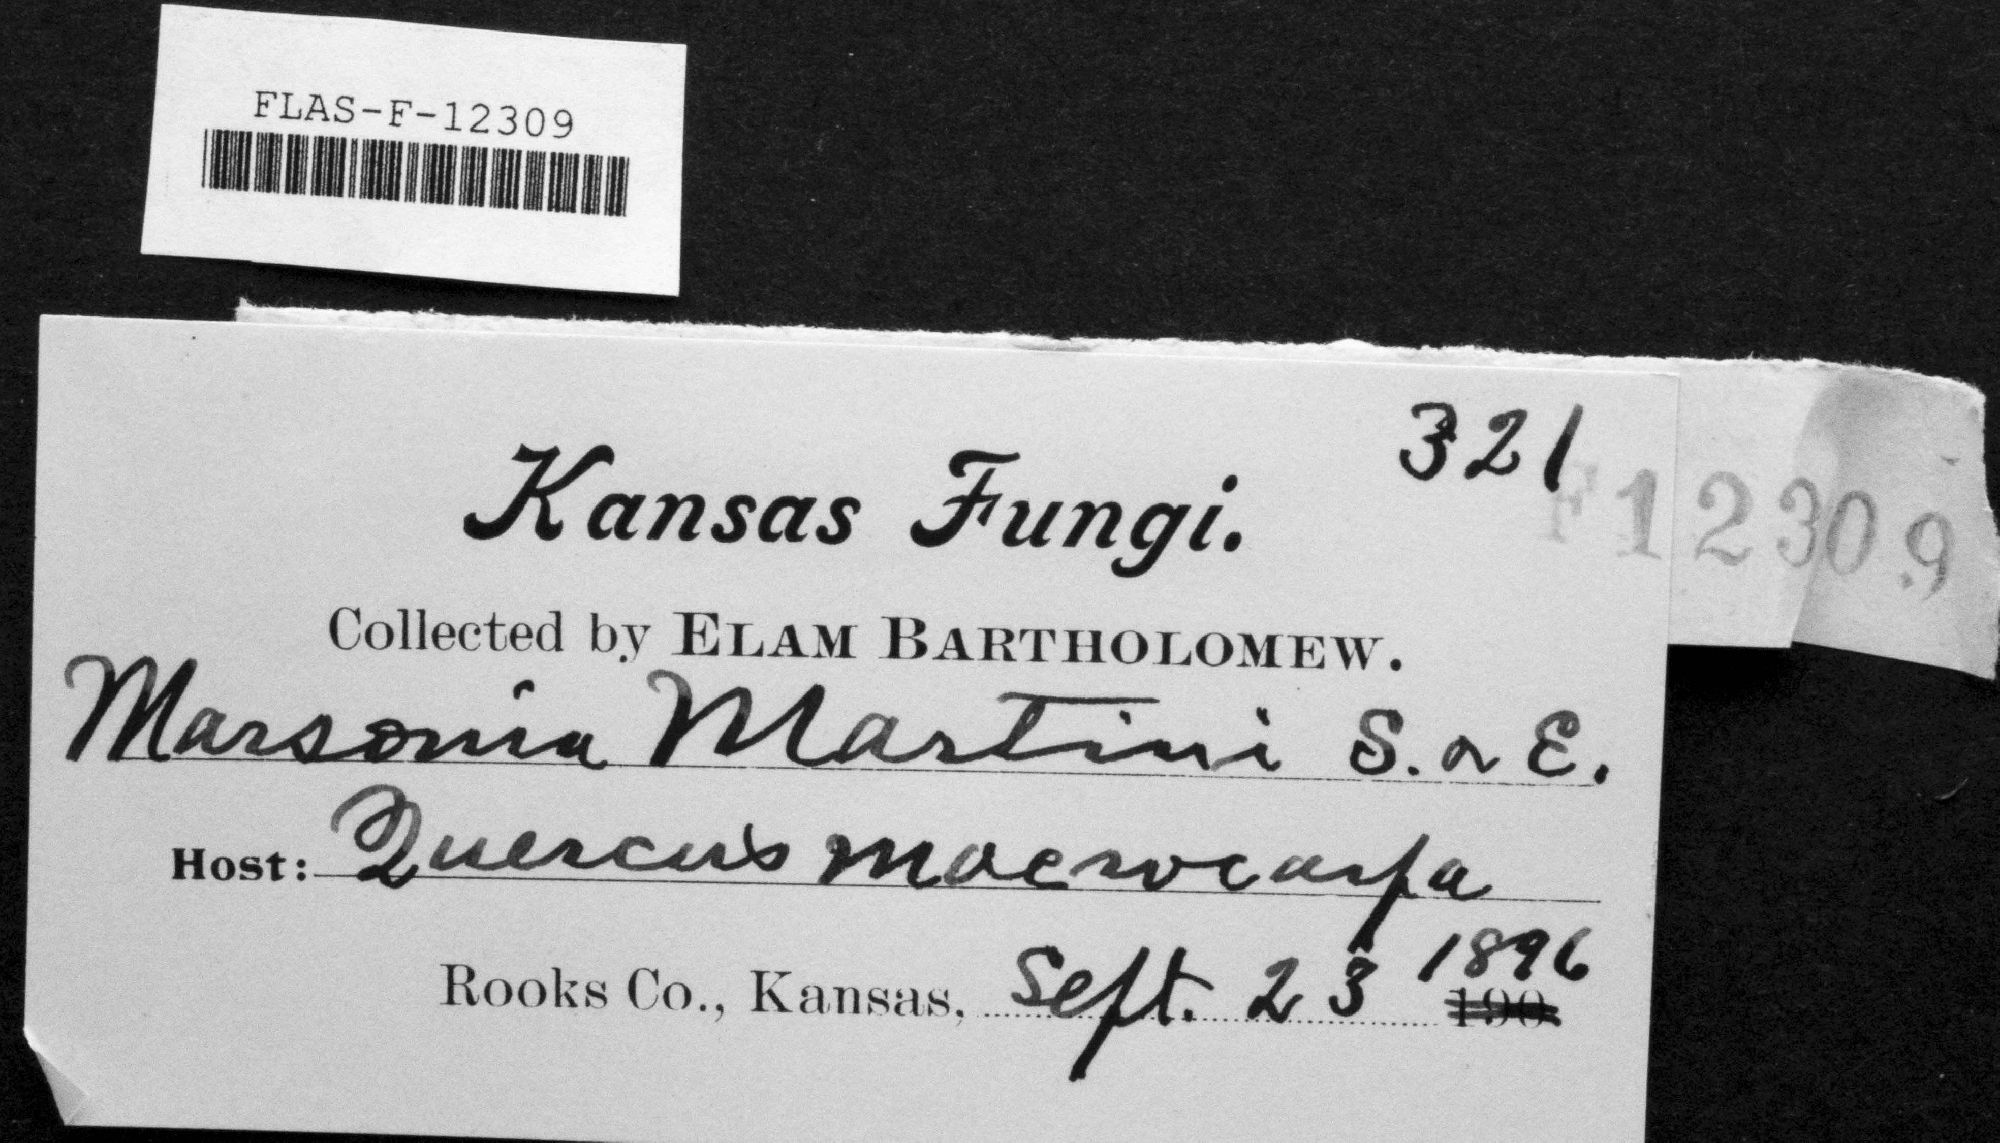 FLAS-F-12309
321
Kansas Fungi.
F12309
Collected by ELAM BARTHOLOMEW.
Marsonia Martini S. & E.
Host: Quercus macrocarpa
Rooks Co., Kansas, Sept. 23 1896
190